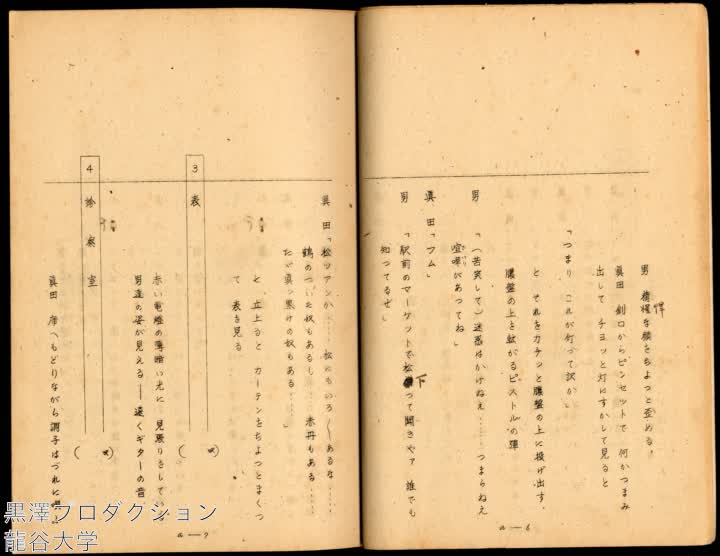 男 精悍な顔をちょっと歪める。
眞田 創口からピンセットで 何かつまみ
出して チョッと灯にすかして見ると
「つまり これが釘って訳か」
と それをカチッと膿盤の上に投げ出す。
膿盤の上を転がるピストルの弾
男 「(苦笑して)迷惑はかけねえ……つまらねえ
喧嘩があってね」
眞田「フム」
男 「駅前のマーケットで松下って聞きやァ 誰でも
知ってるぜ」
a—6
眞田「松ツァンか…… 松にもいろ〳〵あるな……
鶴のついた奴もあるし…… 赤丹もある……
たゞ眞ッ黒けの奴もある……」
と 立上ると カーテンをちよっとまくつ
て 表を見る
3 表
赤い電燈の薄暗い光に 見張りをしている
男達の姿が見える——遠くギターの音
4 診察室
眞田 席へもどりながら 調子はづれに
a—7
黒澤プロダクション
龍谷大学